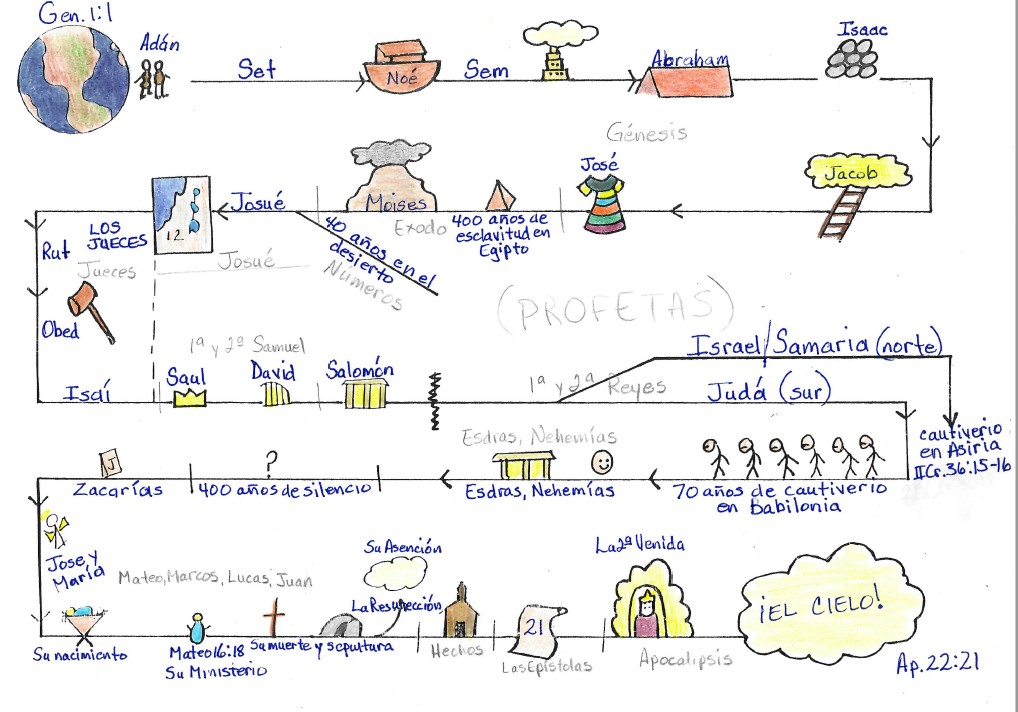 Gen. 1:1
Adán
Set
Noé
Sem
Abraham
Isaac
Génesis
Jacob
José
400 años de
esclavitud en
Egipto
Moises
Exodo
40 años en el
desierto
Números
Josué
Josué
12
LOS
JUECES
Jueces
Rut
Obed
Isaí
(PROFETAS)
1ª y 2ª Samuel
Saul
David
Salomón
1ª y 2ª Reyes
Israel/Samaria (norte)
Judá (sur)
cautiverio
en Asiria
II Cr. 36:15-16
70 años de cautiverio
en Babilonia
Esdras, Nehemías
Esdras, Nehemías
?
400 años de silencio
J
Zacarías
Jose y
María
Mateo, Marcos, Lucas, Juan
Su nacimiento
Mateo 16:18
Su Ministerio
Su muerte y sepultura
La Resurección
Su Asención
Hechos
21
Las Epístolas
La 2ª Venida
Apocalipsis
¡EL CIELO!
Ap. 22:21